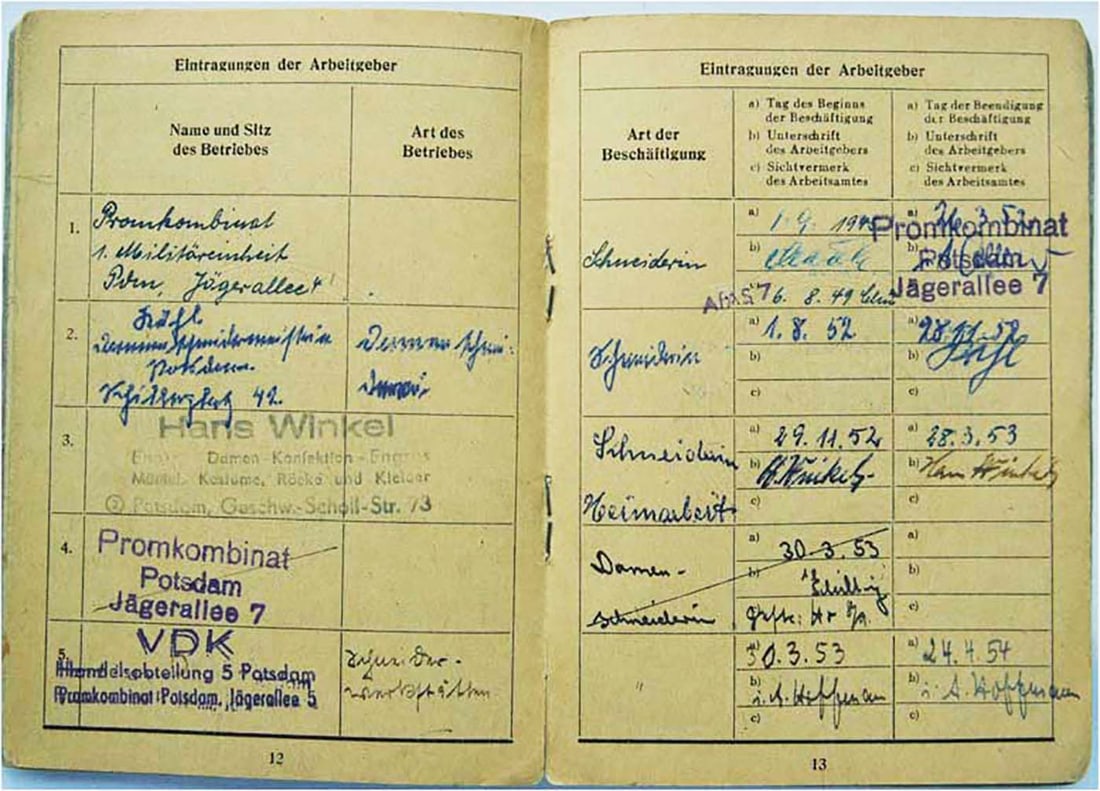 Eintragungen der Arbeitgeber
Name und Sitz
des Betriebes
Art des
Betriebes
1.
Promkombinat
1. Militäreinheit
Pdm, Jägerallee
2.
Damenschneidermeisterin
Potsdam
42.
Damenschnei-
derei
3.
Hans Winkel
Damen-Konfektion-Engros
Mäntel, Kostüme, Röcke und Kleider
Potsdam, Geschw.-Scholl-Str. 73
4.
Promkombinat
Potsdam
Jägerallee 7
5.
VDK
Handelsabteilung 5 Potsdam
Promkombinat Potsdam, Jägerallee 5
Schneider-
werkstätten
12
Eintragungen der Arbeitgeber
Art der
Beschäftigung
a) Tag des Beginns
der Beschäftigung
b) Unterschrift
des Arbeitgebers
c) Sichtvermerk
des Arbeitsamtes
a) Tag der Beendigung
der Beschäftigung
b) Unterschrift
des Arbeitgebers
c) Sichtvermerk
des Arbeitsamtes
Schneiderin
a) 1. 9. 194
b)
6. 8. 49
a)
b)
Promkombinat
Potsdam
Jägerallee 7
Schneiderin
a) 1. 8. 52
b)
c)
a)
b)
c)
Schneiderin
Heimarbeit
a) 29. 11. 52
b) H. Winkel
c)
a) 28. 3. 53
b) Hans Winkel
c)
Damen-
schneiderin
a) 30. 3. 53
b)
a)
b)
c)
"
a) 30. 3. 53
b) i. A. Hoffmann
c)
a) 24. 4. 54
b) i. A. Hoffmann
c)
13